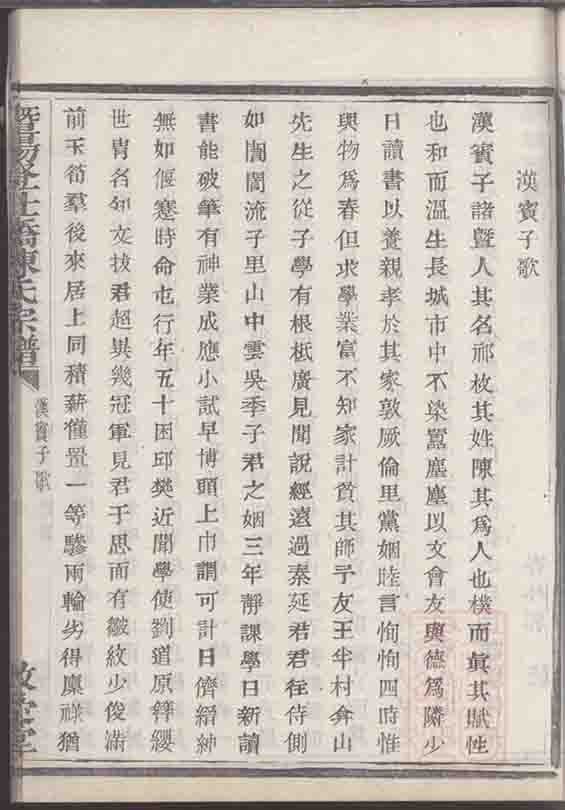 漢賓子歌
漢賓子諸暨人其名祁枚其姓陳其爲人也樸而眞其賦性
也和而溫生長城市中不染囂塵塵以文會友與德爲隣少
日讀書以養親孝於其家敦厥倫里黨姻睦言恂恂四時惟
與物爲春但求學業富不知家計貧其師予友王半村弇山
先生之從子學有根柢廣見聞說經遠過秦延君君往侍側
如誾誾流子里山中雲吳季子君之姻三年靜課學日新讀
書能破筆有神業成應小試早博頭上巾謂可計日儕縉紳
無如偃蹇時命屯行年五十困邱樊近聞學使劉道原簪纓
世胄名知文拔君超異幾冠軍見君于思而有皺紋少俊滿
前玉筍羣後來居上同積薪僅置一等驂兩輪劣得廩祿猶
暨陽 陳氏宗譜
漢賓子歌